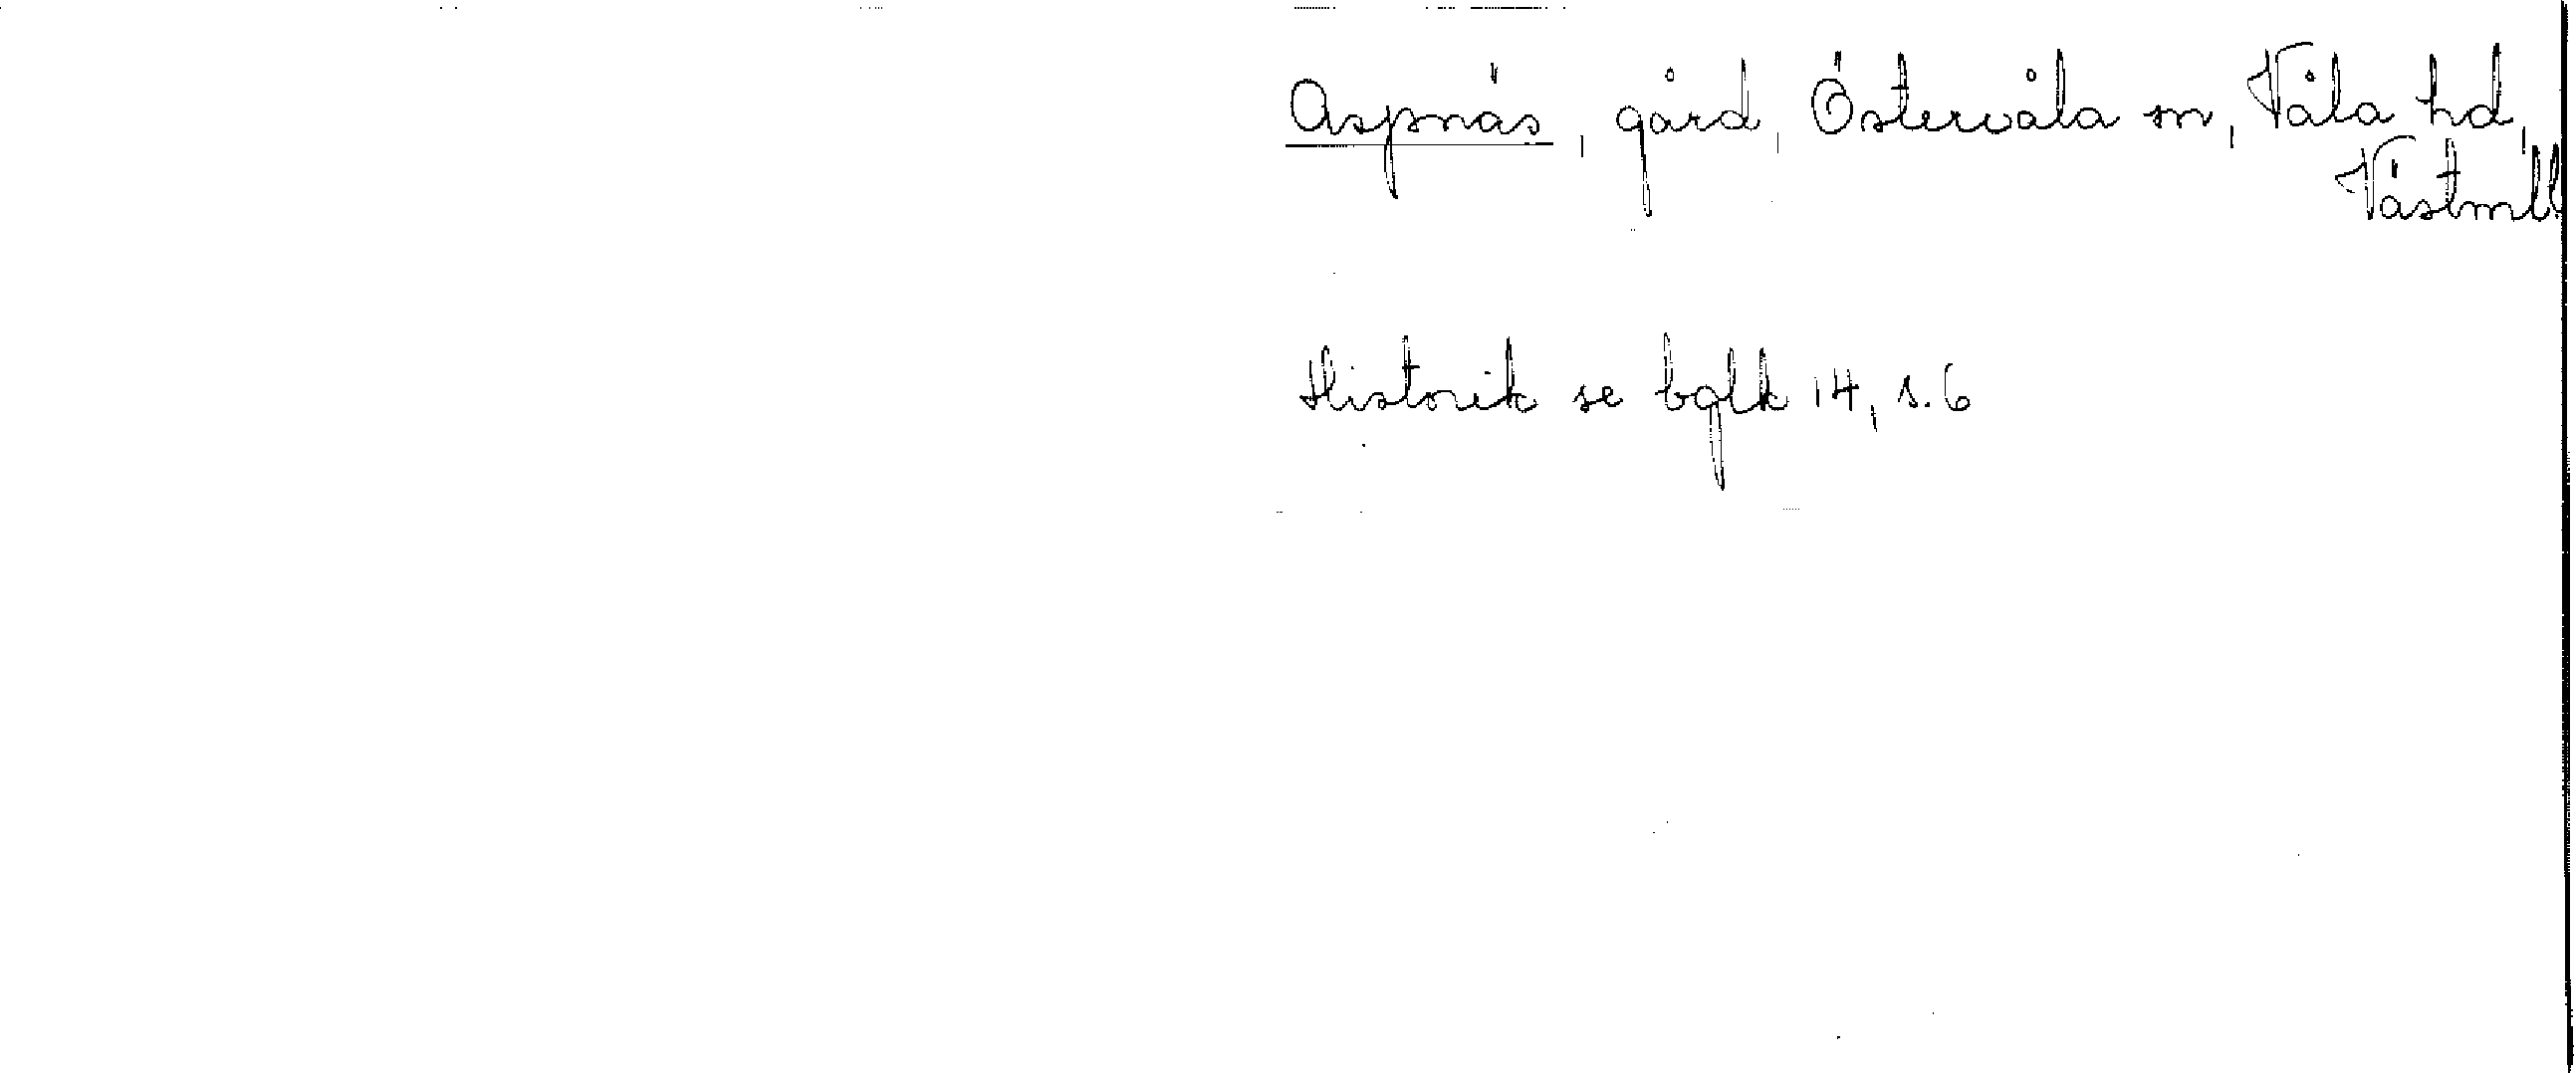 Aspnäs, gård, Östervåla sn, Våla hd,
Västmll
Historik se bqlk 14, s.6